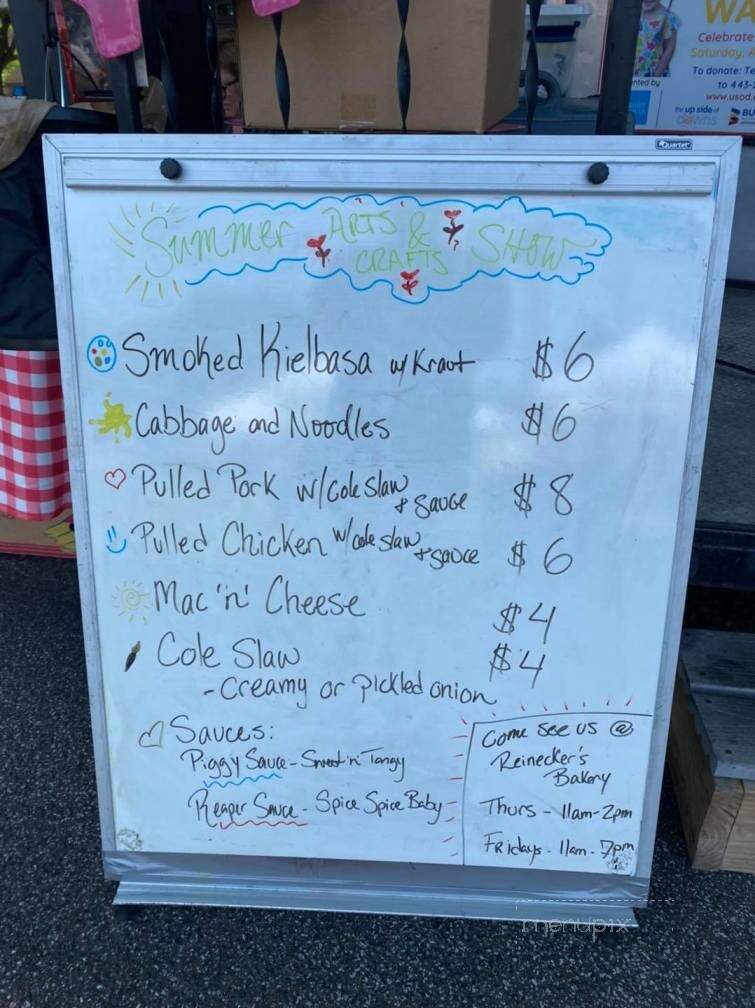 WA
Celebrate
Saturday, A
To donate: Te
to 443-2
www.usod.
the up side of
downs
BU
Quartet
Summer ARTS & CRAFTS SHOW
Smoked Kielbasa w/ Kraut $6
Cabbage and Noodles $6
Pulled Pork w/ Cole Slaw + sauce $8
Pulled Chicken w/ cole slaw + sauce $6
Mac 'n' Cheese $4
Cole Slaw $4
- Creamy or pickled onion
Sauces:
Piggy Sauce - Sweet 'n' Tangy
Reaper Sauce - Spice Spice Baby
Come see us @
Reinecker's
Bakery
Thurs - 11am-2pm
Fridays - 11am-7pm
menupix